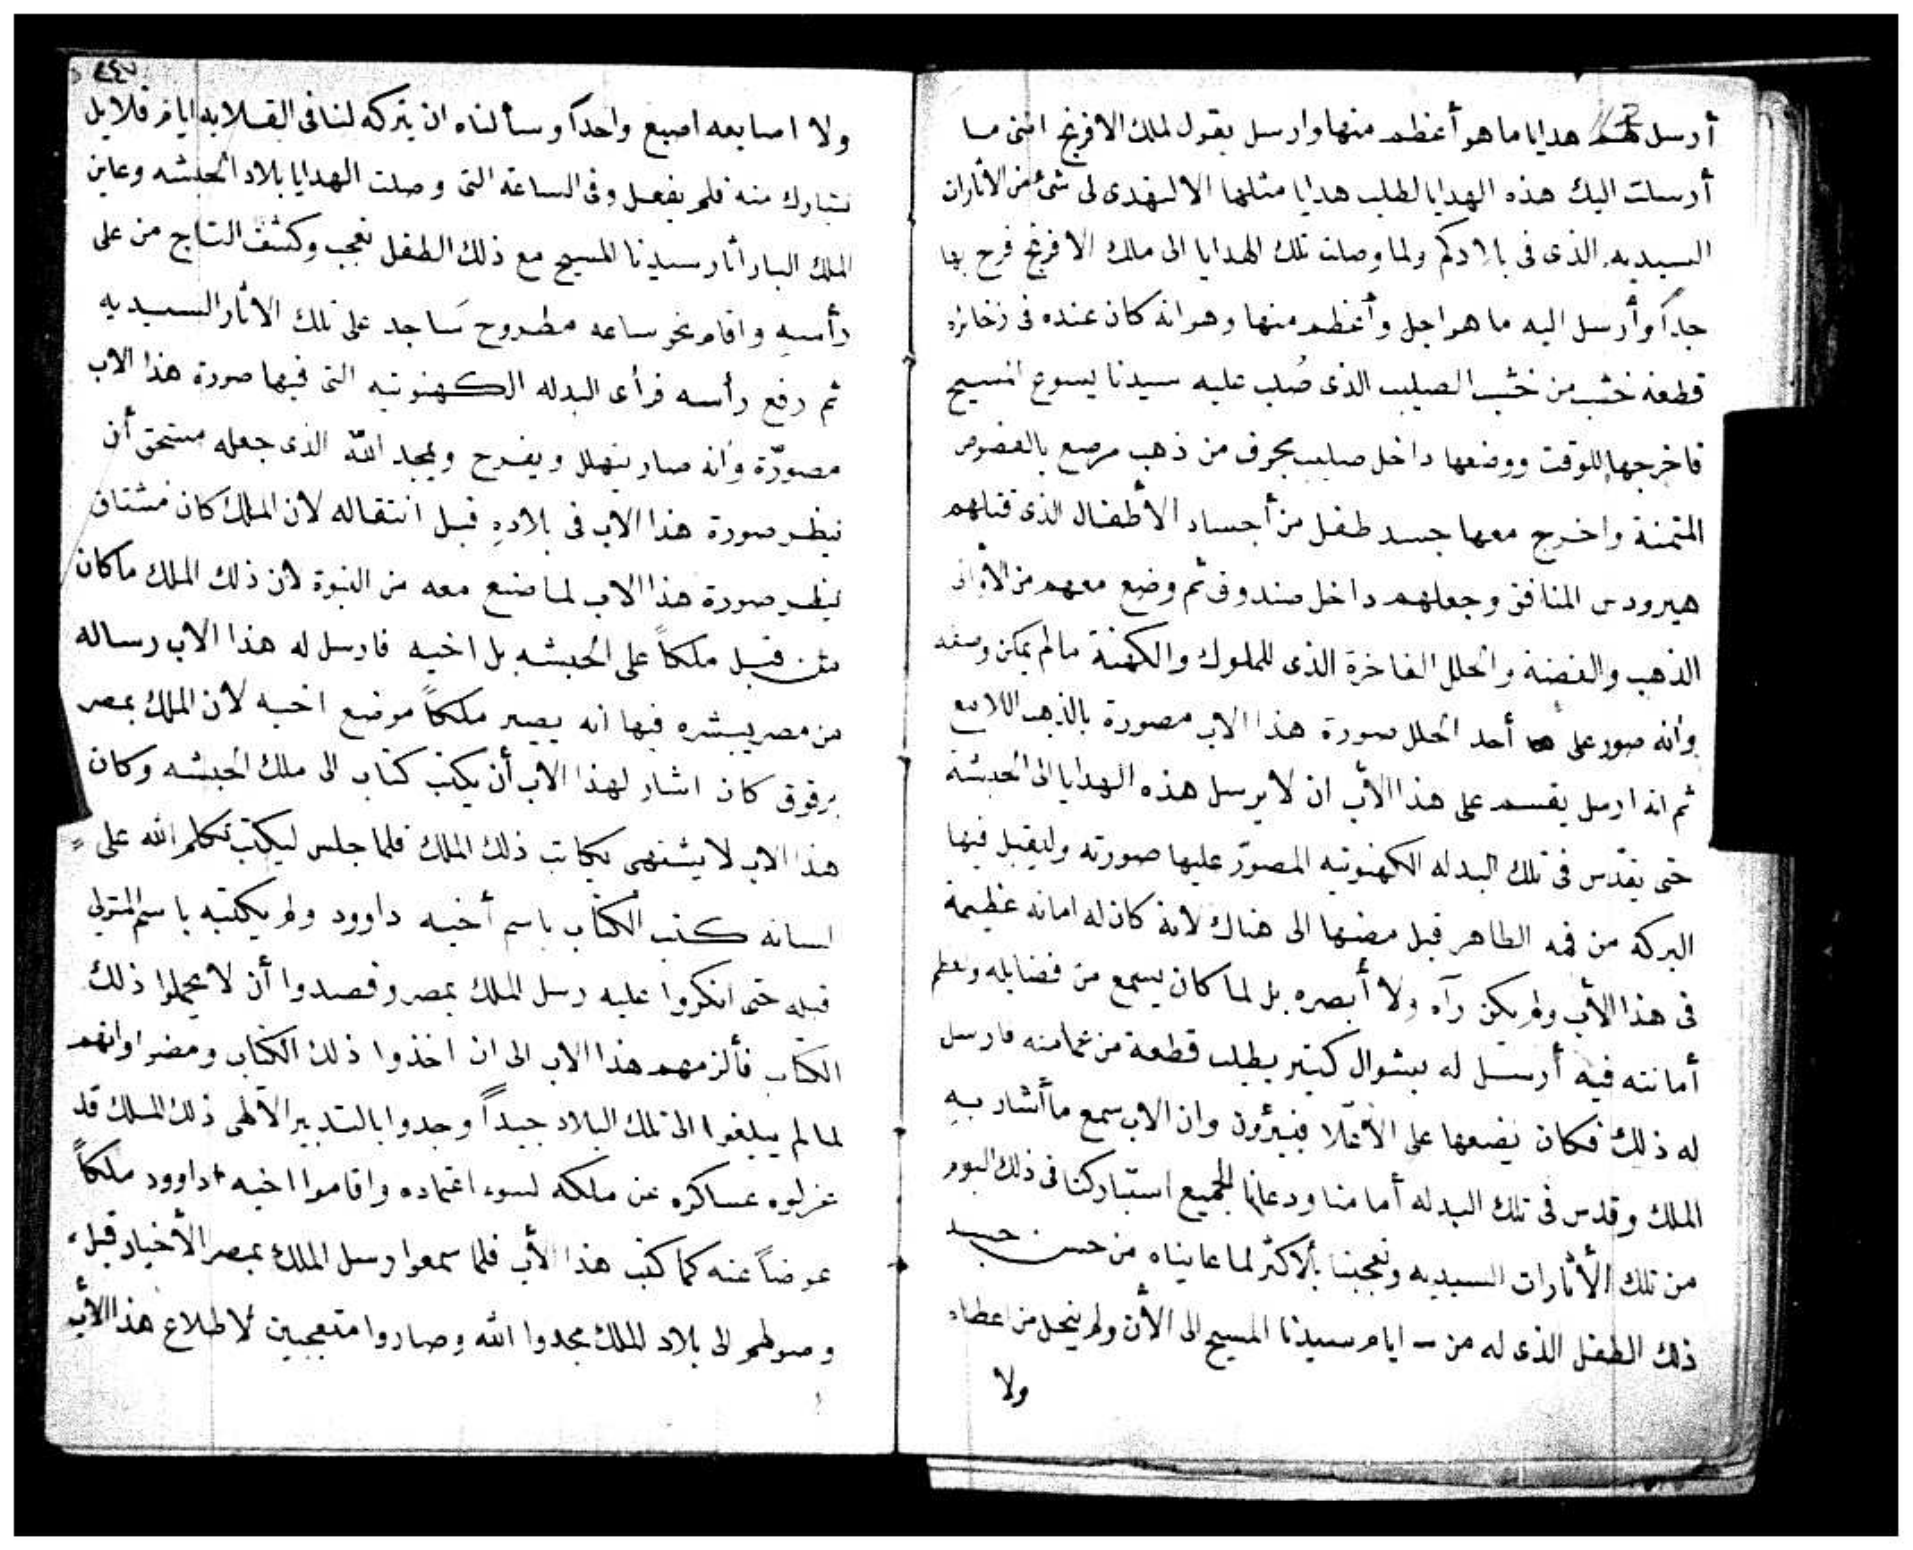 أرسل لهم هدايا ما هو أعظم منها وارسل يقول لملك الافرنج اننى ما
أرسلت اليك هذه الهدايا لطلب هدايا مثلها الا لتهدى لى شئ من الأثاران
السيديه الذى فى بلادكم ولما وصلت تلك الهدايا الى ملك الافرنج فرح بها
جداً وأرسل اليه ما هو اجل وأعظم منها وهو انه كان عنده فى زخائره
قطعة خشب من خشب الصليب الذى صُلب عليه سيدنا يسوع المسيح
فاخرجها للوقت ووضعها داخل صليب مجوف من ذهب مرصع بالفصوص
المتمنة واخرج معها جسد طفل من أجساد الأطفال الذى قتلهم
هيرودس المنافق وجعلهم داخل صندوق ثم وضع معهم من الأوانى
الذهب والفضة والحلل الفاخرة الذى للملوك والكهنة ما لم يمكن وصفه
وأنه صور على أحد الحلل صورة هذا الاب مصورة بالذهب اللامع
ثم انه ارسل يقسم على هذا الأب ان لا يرسل هذه الهدايا الى الحبشة
حتى يقدّس فى تلك البدله الكهنوتيه المصوّر عليها صورته وليقبل فيها
البركة من فمه الطاهر قبل مضيها الى هناك لانة كان له امانه عظيمة
فى هذا الأب ولم يكن رآه ولا أبصره بل لما كان يسمع من فضايله وعظم
أمانته فيه أرسل له بسؤال كتير يطلب قطعة من عمامته فارسل
له ذلك فكان يضعها على الأعلّا فيبرؤن وان الاب سمع ما أشار به
الملك وقدس فى تلك البدله أمامنا ودعانا للجميع استباركنا فى ذلك اليوم
من تلك الأثارات السيديه وتعجبنا بألاكثر لما عايناه من حسن جسد
ذلك الطفل الذى له من ايام سيدنا المسيح الى الأن ولم ينحل من اعضاه
ولا
٢٤٧
ولا اصابعه اصبع واحداً وسألناه ان يتركه لنا فى القلايه ايام قلايل
نتبارك منه فلم يفعل وفى الساعة التى وصلت الهدايا بلاد الحبشه وعاين
الملك البار أثار سيدنا المسيح مع ذلك الطفل تعجب وكشف التاج من على
رأسه واقام نحو ساعه مطروح سَاجد على تلك الاثار السيديه
ثم رفع رأسه فرأى البدله الكهنوتيه التى فيها صورة هذا الاب
مصورّة وأنه صار يتهلل ويفرح ويمجد الله الذى جعله مستحق أن
ينظر صورة هذا الاب فى بلاده قبل انتقاله لان الملك كان مشتاق
لينظر صورة هذا الاب لما صنع معه من النبوة لأن ذلك الملك ما كان
من قبل ملكاً على الحبشه بل اخيه فارسل له هذا الاب رساله
من مصر يبشره فيها انه يصير ملكاً موضع اخيه لان الملك بمصر
برقوق كان اشار لهذا الاب أن يكتب كتاب الى ملك الحبشه وكان
هذا الاب لا يشتهى يكاتب ذلك الملك فلما جلس ليكتب تكلم الله على
لسانه كتب الكتاب باسم أخيه داوود ولم يكتبه باسم المتولى
قبله حتى انكروا عليه رسل الملك بمصر وقصدوا أن لا يحملوا ذلك
الكتاب فألزمهم هذا الاب الى ان اخذوا ذلك الكتاب ومضوا وانهم
لما لم يبلغوا الى تلك البلاد جيداً وجدوا بالتدبير الألهى ذلك الملك قد
عزلوه عساكره عن ملكه لسوء اعتماده واقاموا اخيه داوود ملكاً
عوضاً عنه كما كتب هذا الأب فلما سمعوا رسل الملك بمصر الأخبار قبل
وصولهم الى بلاد الملك مجدوا الله وصاروا متعجبين لاطلاع هذا الأب